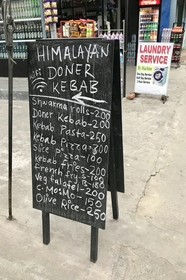 HIMALAYAN
DONER
KEBAB
Shwarma rolls-200
Doner Kebab-200
Kebab Pasta-250
Kebab Pizza-300
Slice Pizza-100
kebab fries-200
french fry's-100
Veg falafel-200
C. Mo:Mo-150
Olive Rice-250
LAUNDRY
SERVICE